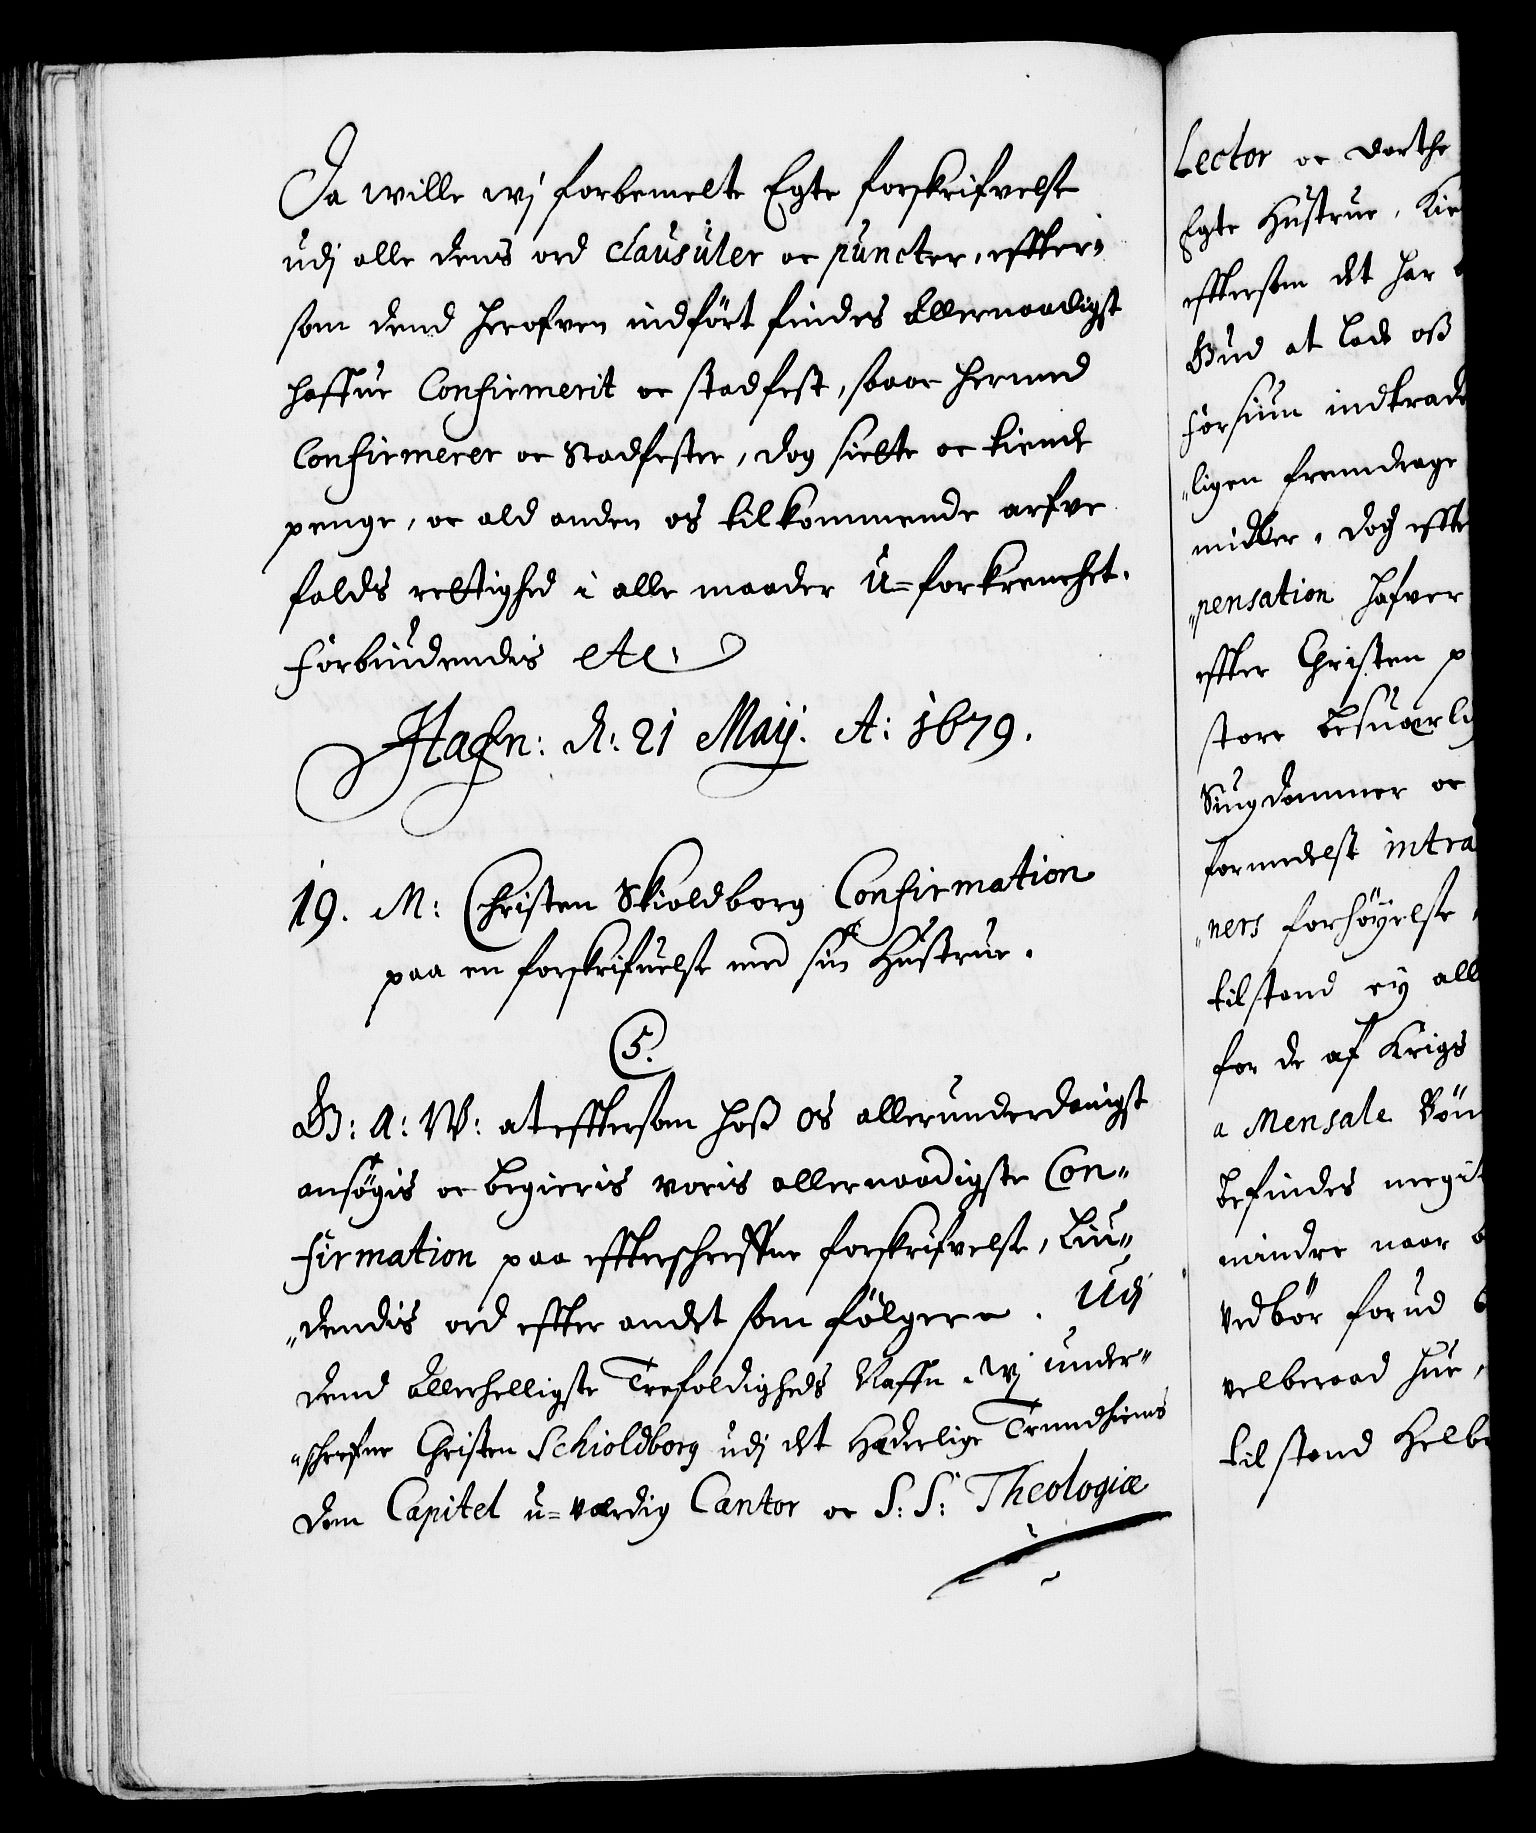 Da wille wj forbemelte Egte forskrifvelse
udj alle dens ord Clausuler oc puncter, effter-
som dend herofven indfört findes Allernaadigst
haffue Confirmerit oc stadfest, saa oc hermed
Confirmerer oc Stadfester, dog siette oc tiende
penge, oc ald anden os tilkommende arfve
falds rettighed i alle maader u=forkrenchet.
Forbiudendis etc.
Hafn: d: 21 Maij. A: 1679.
19. M: Christen Skioldborg Confirmation
paa en forskrifuelse med sin Hustrue.
5.
G: A: W: at effersom hoß os allerunderdanigst
ansögis oc begieris voris allernaadigste Con-
firmation paa effterschreffne forskrifvelse, Liu-
dendis ord effter andet som fölger. Udj
dend Allerhelligste Trefoldigheds Naffn, Wj under-
schrefne Christen Schioldborg udj det Hæderlige Trundhiems
Dom Capitel u=værdig Cantor oc S: S: Theologiæ
Lector oc Dorthe
Egte Hustrue, Kir
effersom det har
Gud at lade oß
Forsiun indtræde
ligen fremdrage
midler, dog effte
pensation hafver
effter Christen p
store besuærlig
Siugdommer oc
formedelst intra
ners forhöyelse
tilstand ey all
for de af Krigs
a Mensale Bön
befindes megit
mindre naar
vedbör forud
velberaad hue,
tilstand Helbr